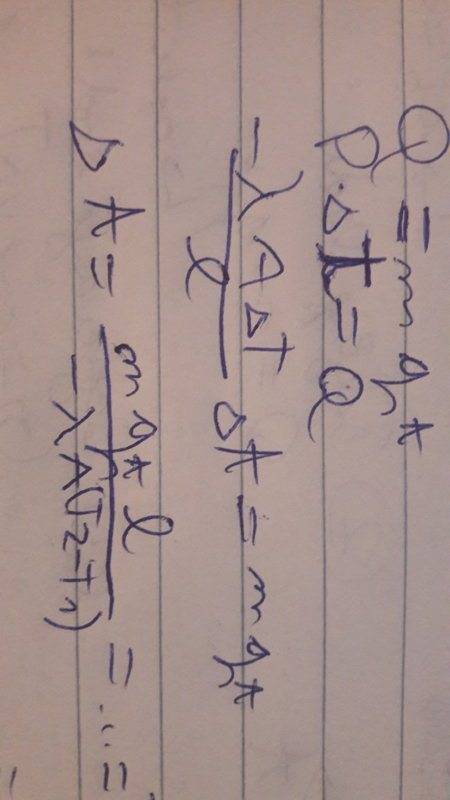 Q = m q_t
P · Δt = Q
-λ A ΔT / l Δt = m q_t
Δt = m q_t l / -λ A (T2 - T1) = ... =